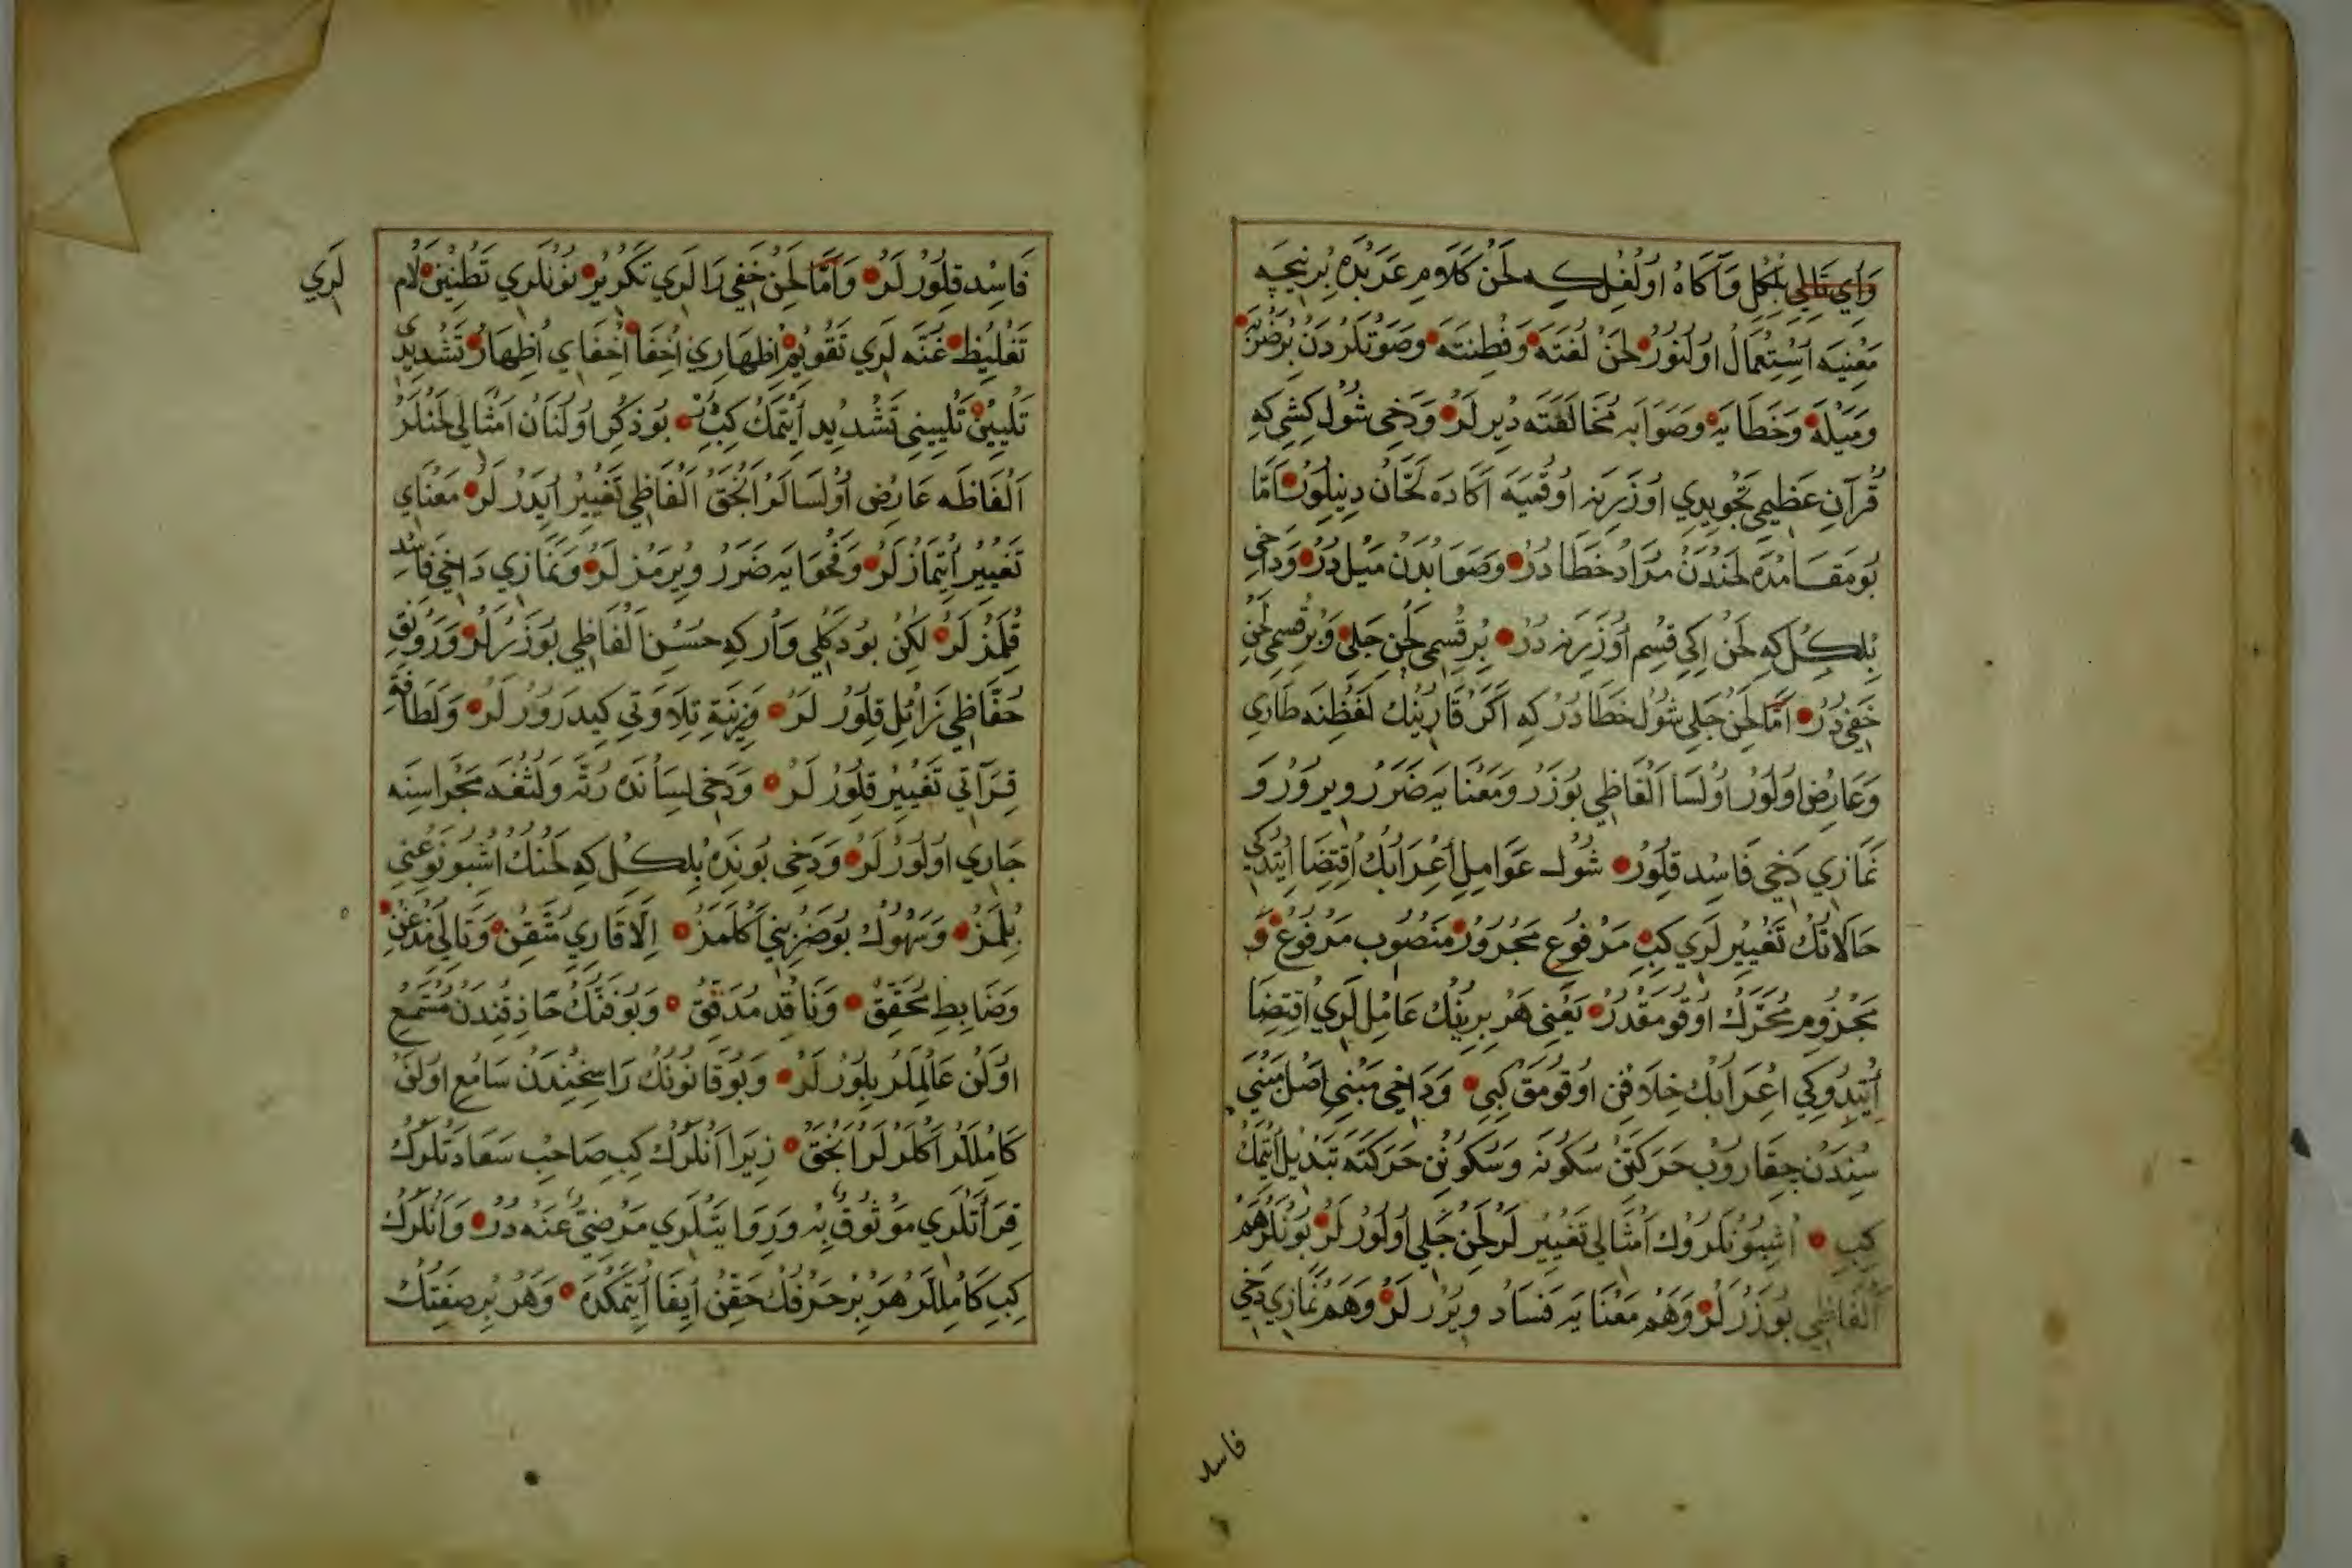 وَاَي تَالِي بُلْكِل وَآكَاه اُولْغِل كِه لَحْن كَلَامِ عَرَبْدَه بِرْنِيجَه
مَعْنِيَه اِسْتِعْمَالْ اُولُنُورْ لَحِنْ لُغَتَه وَفِطْنَتَه وَصَوْتْلَرْدَنْ بِرْضَرْبَه
وَمَيْلَه وَخَطَايَه وَصَوَابَه مُخَالَفَتَه دِيرلَرْ وَدَخِي شُولْ كِشِي كِه
قُرْآنِ عَظِيمِي تَجْوِيدِي اُوزَرِينَه اُوقُمِيَه اَكَا دَه لَحَّانْ دِينِلُورْ اَمَّا
بُومَقَامْدَه لَحِنْدَنْ مُرَادْ خَطَا دُرْ وَصَوَابْدَنْ مَيْل دُرْ وَدَاخِي
بِلْكِلْ كِه لَحْنْ اِكِي قِسِم اُوزَرِينَه دُرْ بِرْقِسْمِي لَحْنِ جَلِي وَبِرْقِسْمِي لَحْنِ
خَفِي دُرْ اَمَّا لَحْنِ جَلِي شُولْ خَطَا دُرْكِه اَكَرْ قَارِينِكْ لَفْظِنَه طَارِي
وَعَارِضْ اُولُورْ اُولْسَا اَلْفَاظِي بُوزَرْ وَمَعْنَايَه ضَرَرْ وِيرُورْ وَ
نَمَازِي دَخِي فَاسِد قِلُورْ شُولْ عَوَامِلِ اِعْرَابِكْ اِقْتِضَا اِيتْدُكِي
حَالَاتِكْ تَغْيِيرلَرِي كِبِي مَرْفُوع مَجْرُورْ مَنْصُوب مَرْفُوعْ وَ
مَجْزُوم مُحَرَّكْ اُوقُومَقْدُرْ يَعْنِي هَرْ بِرِينِكْ عَامِللَرِي اِقْتِضَا
اِيتْدُوكِي اِعْرَابِكْ خِلَافِنْ اُوقُومَقْ كِبِي وَدَاخِي مَبْنِي اَصْل مَبْنِي
سِنْدَنْ چِقَارُوبْ حَرَكَتِنْ سُكُونَه وَسُكُونِنْ حَرَكَتَه تَبْدِيل اِيتْمَكْ
كِبِي اُشْبُونْلَرُوكْ اَمْثَالِي تَغْيِيرلَرْ لَحْنِ جَلِي اُولُورلَرْ بُونْلَرْ هَمْ
اَلْفَاظِي بُوزَرْلَرْ وَهَمْ مَعْنَايَه فَسَاد وِيرُرلَرْ وَهَمْ نَمَازِي دَخِي
فاسد
فَاسِد قِلُورْلَرْ وَاَمَّا لَحْنِ خَفِي رَالَرِي تَكْرِيرْ نُونْلَرِي تَطْنِينْ لَام
لَرِي
تَغْلِيظْ غُنَّه لَرِي تَقْوِيمْ اِظْهَارِي اِخْفَا اِخْفَايِ اِظْهَارْ تَشْدِيدِي
تَلْيِينْ تَلْيِينِي تَشْدِيد اِيتْمَكْ كِبِي بُو ذِكْر اُولُنَانْ اَمْثَالِي لَحِنْلَرْ
اَلْفَاظَه عَارِضْ اُولْسَالَرْ اَنْجَقْ اَلْفَاظِي تَغْيِيرْ اِيدَرْلَرْ مَعْنَايِ
تَغْيِيرْ اِيتْمَازْلَرْ وَفَحْوَايَه ضَرَرْ وِيرْمَزلَرْ وَنَمَازِي دَاخِي فَاسِد
قِلْمَزْلَرْ لَكِنْ بُو دَكْلِي وَارْكِه حُسْنِ اَلْفَاظِي بُوزَرْلَرْ وَرَوْنَقِ
حُفَّاظِي زَائِل قِلُورْلَرْ وَزِينَةِ تِلَاوَتِي كِيدَرُورْلَرْ وَلَطَافَةِ
قِرَآتِي تَغْيِيرْ قِلُورْلَرْ وَدَخِي لِسَانْدَه رُتَّه وَلُثْغَه مَجْرَاسِنَه
جَارِي اُولُورْلَرْ وَدَخِي بُونِدَه بِلْكِلْ كِه لَحْنِكْ اُشْبُو نَوْعِنِي
بِلْمَزْ وَسَهْوُكْ بُوضَرْبِنِي اَكْلَمَزْ اِلَّا قَارِيِ مُتْقِنْ وَتَالِيِ مُذْعِنْ
وَضَابِطِ مُحَقِّقْ وَنَاقِدِ مُدَقِّقْ وَبُوفَنِّكْ حَاذِقِنْدَنْ مُسْتَمِعْ
اُولَنْ عَالِمْلَرْ بِلُورْلَرْ وَبُوقَانُونُكْ رَاسِخِنْدَنْ سَامِع اُولَنْ
كَامِلْلَرْ اَكْلَرْلَرْ اَنْجَقْ زِيرَا اَنْلَرُكْ كِبِي صَاحِبِ سَعَادَتْلَرُكْ
قِرَأَتْلَرِي مَوْثُوقٌ بِه وَرِوَايَتْلَرِي مَرْضِيٌّ عَنْه دُرْ وَاَنْلَرُكْ
كِبِي كَامِلْلَرْ هَرْ بِرْ حَرْفِكْ حَقِّنْ اِيفَا اِيتْمَكْدَه وَهَرْ بِرْ صِفَتِكْ